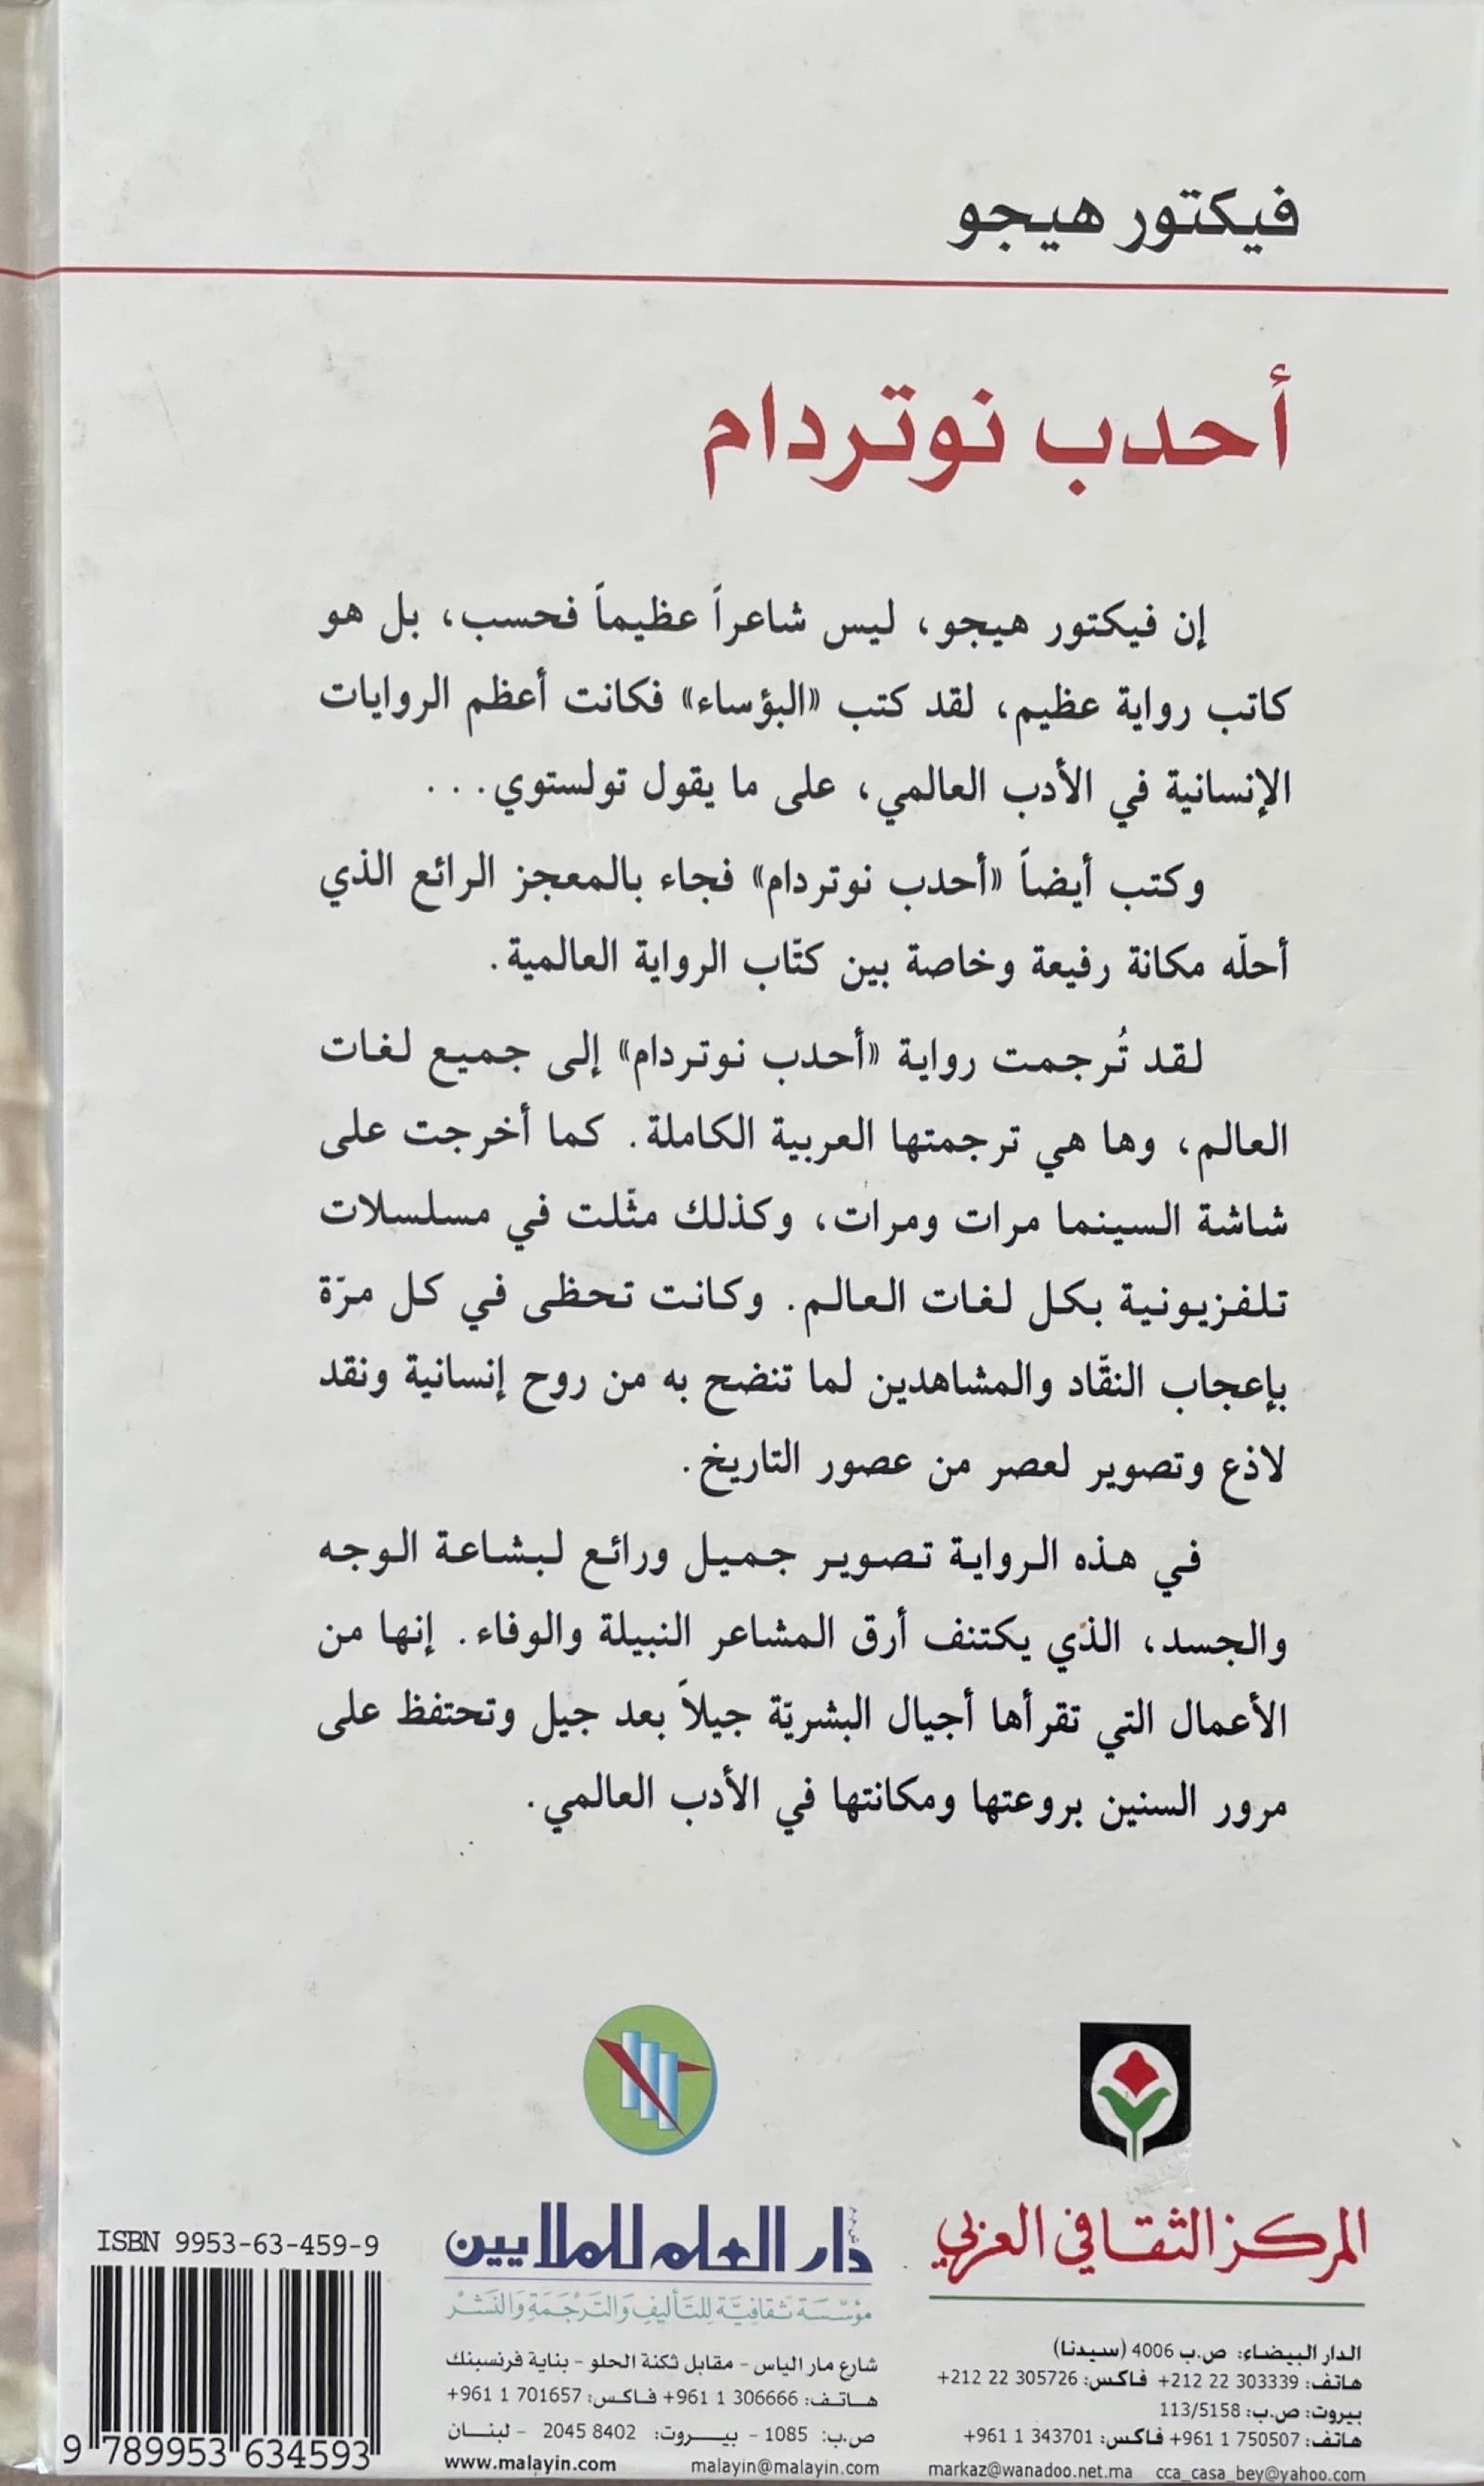 فيكتور هيجو
أحدب نوتردام
إن فيكتور هيجو، ليس شاعراً عظيماً فحسب، بل هو
كاتب رواية عظيم، لقد كتب «البؤساء» فكانت أعظم الروايات
الإنسانية في الأدب العالمي، على ما يقول تولستوي...
وكتب أيضاً «أحدب نوتردام» فجاء بالمعجز الرائع الذي
أحلّه مكانة رفيعة وخاصة بين كتّاب الرواية العالمية.
لقد تُرجمت رواية «أحدب نوتردام» إلى جميع لغات
العالم، وها هي ترجمتها العربية الكاملة. كما أخرجت على
شاشة السينما مرات ومرات، وكذلك مثّلت في مسلسلات
تلفزيونية بكل لغات العالم. وكانت تحظى في كل مرّة
بإعجاب النقّاد والمشاهدين لما تنضح به من روح إنسانية ونقد
لاذع وتصوير لعصر من عصور التاريخ.
في هذه الرواية تصوير جميل ورائع لبشاعة الوجه
والجسد، الذي يكتنف أرق المشاعر النبيلة والوفاء. إنها من
الأعمال التي تقرأها أجيال البشريّة جيلاً بعد جيل وتحتفظ على
مرور السنين بروعتها ومكانتها في الأدب العالمي.
المركز الثقافي العربي
الدار البيضاء: ص.ب 4006 (سيدنا)
هاتف: 303339 22 212+ فاكس: 305726 22 212+
بيروت: ص.ب: 113/5158
هاتف: 750507 1 961+ فاكس: 343701 1 961+
markaz@wanadoo.net.ma cca_casa_bey@yahoo.com
دار العلم للملايين
مؤسَّسَة ثقافيَّة للتَأليف وَالترجَمَة وَالنَشْر
شارع مار الياس - مقابل ثكنة الحلو - بناية فرنسبنك
هاتف: 306666 1 961+ فاكس: 701657 1 961+
ص.ب: 1085 - بيروت: 8402 2045 - لبنان
www.malayin.com malayin@malayin.com
ISBN 9953-63-459-9
9 789953 634593